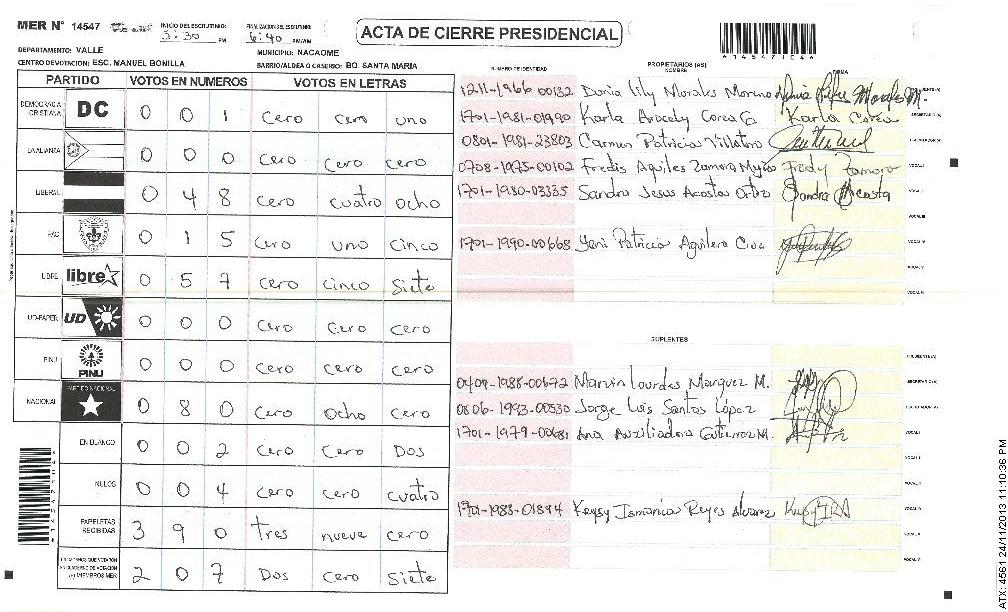 MER N° 14547
INICIO DEL ESCRUTINIO: 5:30 PM
FINALIZACION DEL ESCRUTINIO: 6:40 PM/AM
ACTA DE CIERRE PRESIDENCIAL
DEPARTAMENTO: VALLE
MUNICIPIO: NACAOME
CENTRO DE VOTACION: ESC. MANUEL BONILLA
BARRIO/ALDEA O CASERIO: BO. SANTA MARIA
PARTIDO VOTOS EN NUMEROS VOTOS EN LETRAS
DEMOCRACIA CRISTIANA DC 0 0 1 cero cero uno
LA ALIANZA 0 0 0 cero cero cero
LIBERAL 0 4 8 cero cuatro ocho
PAC 0 1 5 cero uno cinco
LIBRE libre 0 5 7 cero cinco siete
UD-FAPER UD 0 0 0 cero cero cero
PINU PINU 0 0 0 cero cero cero
NACIONAL PARTIDO NACIONAL 0 8 0 cero ocho cero
EN BLANCO 0 0 2 cero cero Dos
NULOS 0 0 4 cero cero cuatro
PAPELETAS RECIBIDAS 3 9 0 tres nueve cero
CIUDADANOS QUE VOTARON EN CUADERNO DE VOTACION (+) MIEMBROS MER 2 0 7 Dos cero siete
PROPIETARIOS (AS)
NUMERO DE IDENTIDAD NOMBRE FIRMA
1211-1966-00132 Dunia Lily Morales Moreno
1701-1981-01990 Karla Aracely Corea G Karla Corea
SECRETARIO (A)
0801-1981-23803 Carmen Patricia Villatoro
ESCRUTADOR (A)
0708-1975-00102 Fredis Aquiles Zamora Fredy Zamora
VOCAL I
1701-1980-03335 Sandra Jesus Acosta Ortez Sandra Acosta
VOCAL II
VOCAL III
1701-1990-00668 Yeni Patricia Aguilera
VOCAL IV
VOCAL V
VOCAL VI
SUPLENTES
PRESIDENTE (A)
Marvin Lourdes Marquez M.
SECRETARIO (A)
0806-1993-00530 Jorge Luis Santos López
ESCRUTADOR (A)
1701-1979-00681 Ana Auxiliadora Gutierrez M.
VOCAL I
VOCAL II
VOCAL III
1701-1988-01894 Keysy Ismania Reyes Alvarez
VOCAL IV
VOCAL V
VOCAL VI
ATX: 4561 24/11/2013 11:10:36 PM